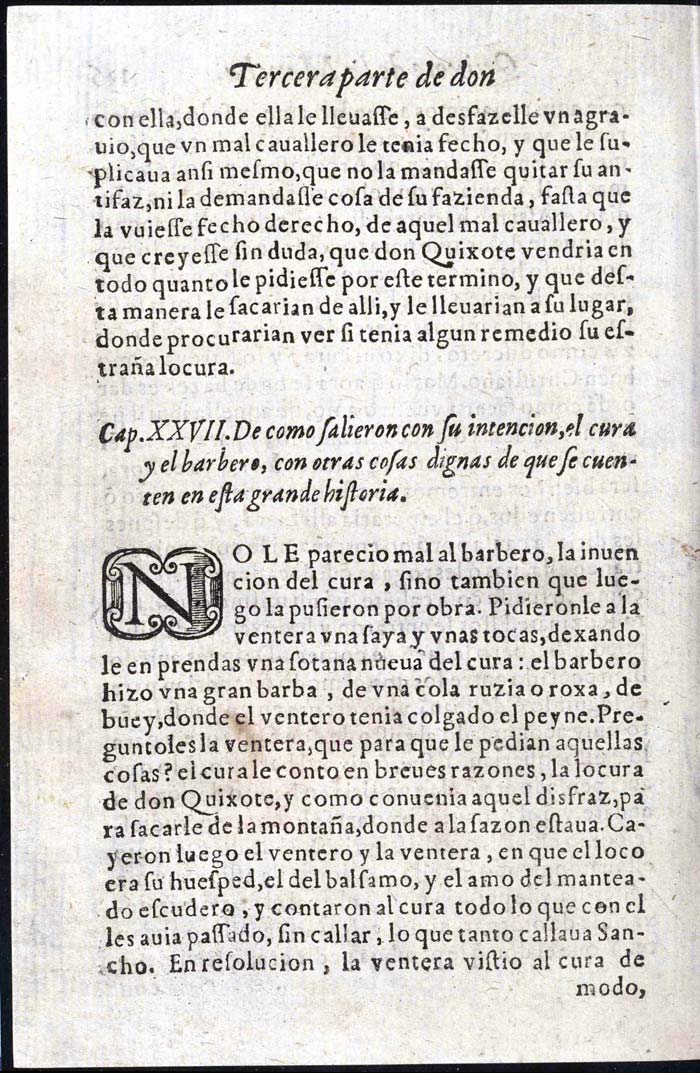 Tercera parte de don
con ella, donde ella le lleuasse, a desfazelle vn agra-
uio, que vn mal cauallero le tenia fecho, y que le su-
plicaua ansi mesmo, que no la mandasse quitar su an-
tifaz, ni la demandasse cosa de su fazienda, fasta que
la vuiesse fecho derecho, de aquel mal cauallero, y
que creyesse sin duda, que don Quixote vendria en
todo quanto le pidiesse por este termino, y que des-
ta manera le sacarian de alli, y le lleuarian a su lugar,
donde procurarian ver si tenia algun remedio su es-
traña locura.
Cap. XXVII. De como salieron con su intencion, el cura
y el barbero, con otras cosas dignas de que se cuen-
ten en esta grande historia.
NO LE parecio mal al barbero, la inuen
cion del cura, sino tambien que lue-
go la pusieron por obra. Pidieronle a la
ventera vna saya y vnas tocas, dexando
le en prendas vna sotana nueua del cura: el barbero
hizo vna gran barba, de vna cola ruzia o roxa, de
buey, donde el ventero tenia colgado el peyne. Pre-
guntoles la ventera, que para que le pedian aquellas
cosas? el cura le conto en breues razones, la locura
de don Quixote, y como conuenia aquel disfraz, pa
ra sacarle de la montaña, donde a la sazon estaua. Ca-
yeron luego el ventero y la ventera, en que el loco
era su huesped, el del balsamo, y el amo del mantea-
do escudero, y contaron al cura todo lo que con el
les auia passado, sin callar, lo que tanto callaua San-
cho. En resolucion, la ventera vistio al cura de
modo,